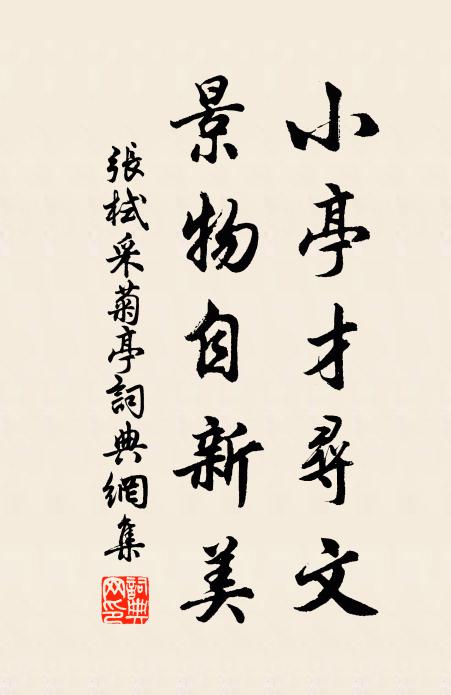 小亭才尋文
景物自新美
張栻采菊亭詞典網集
詞典
网印